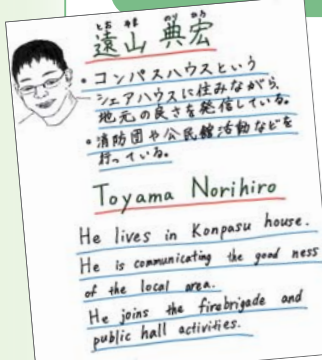 とお やま のり ひろ
遠山 典宏
・コンパスハウスという
シェアハウスに住みながら、
地元の良さを発信している。
・消防団や公民館活動などを
行っている。
Toyama Norihiro
He lives in Konpasu house.
He is communicating the good ness
of the local area.
He joins the firebrigade and
public hall activities.